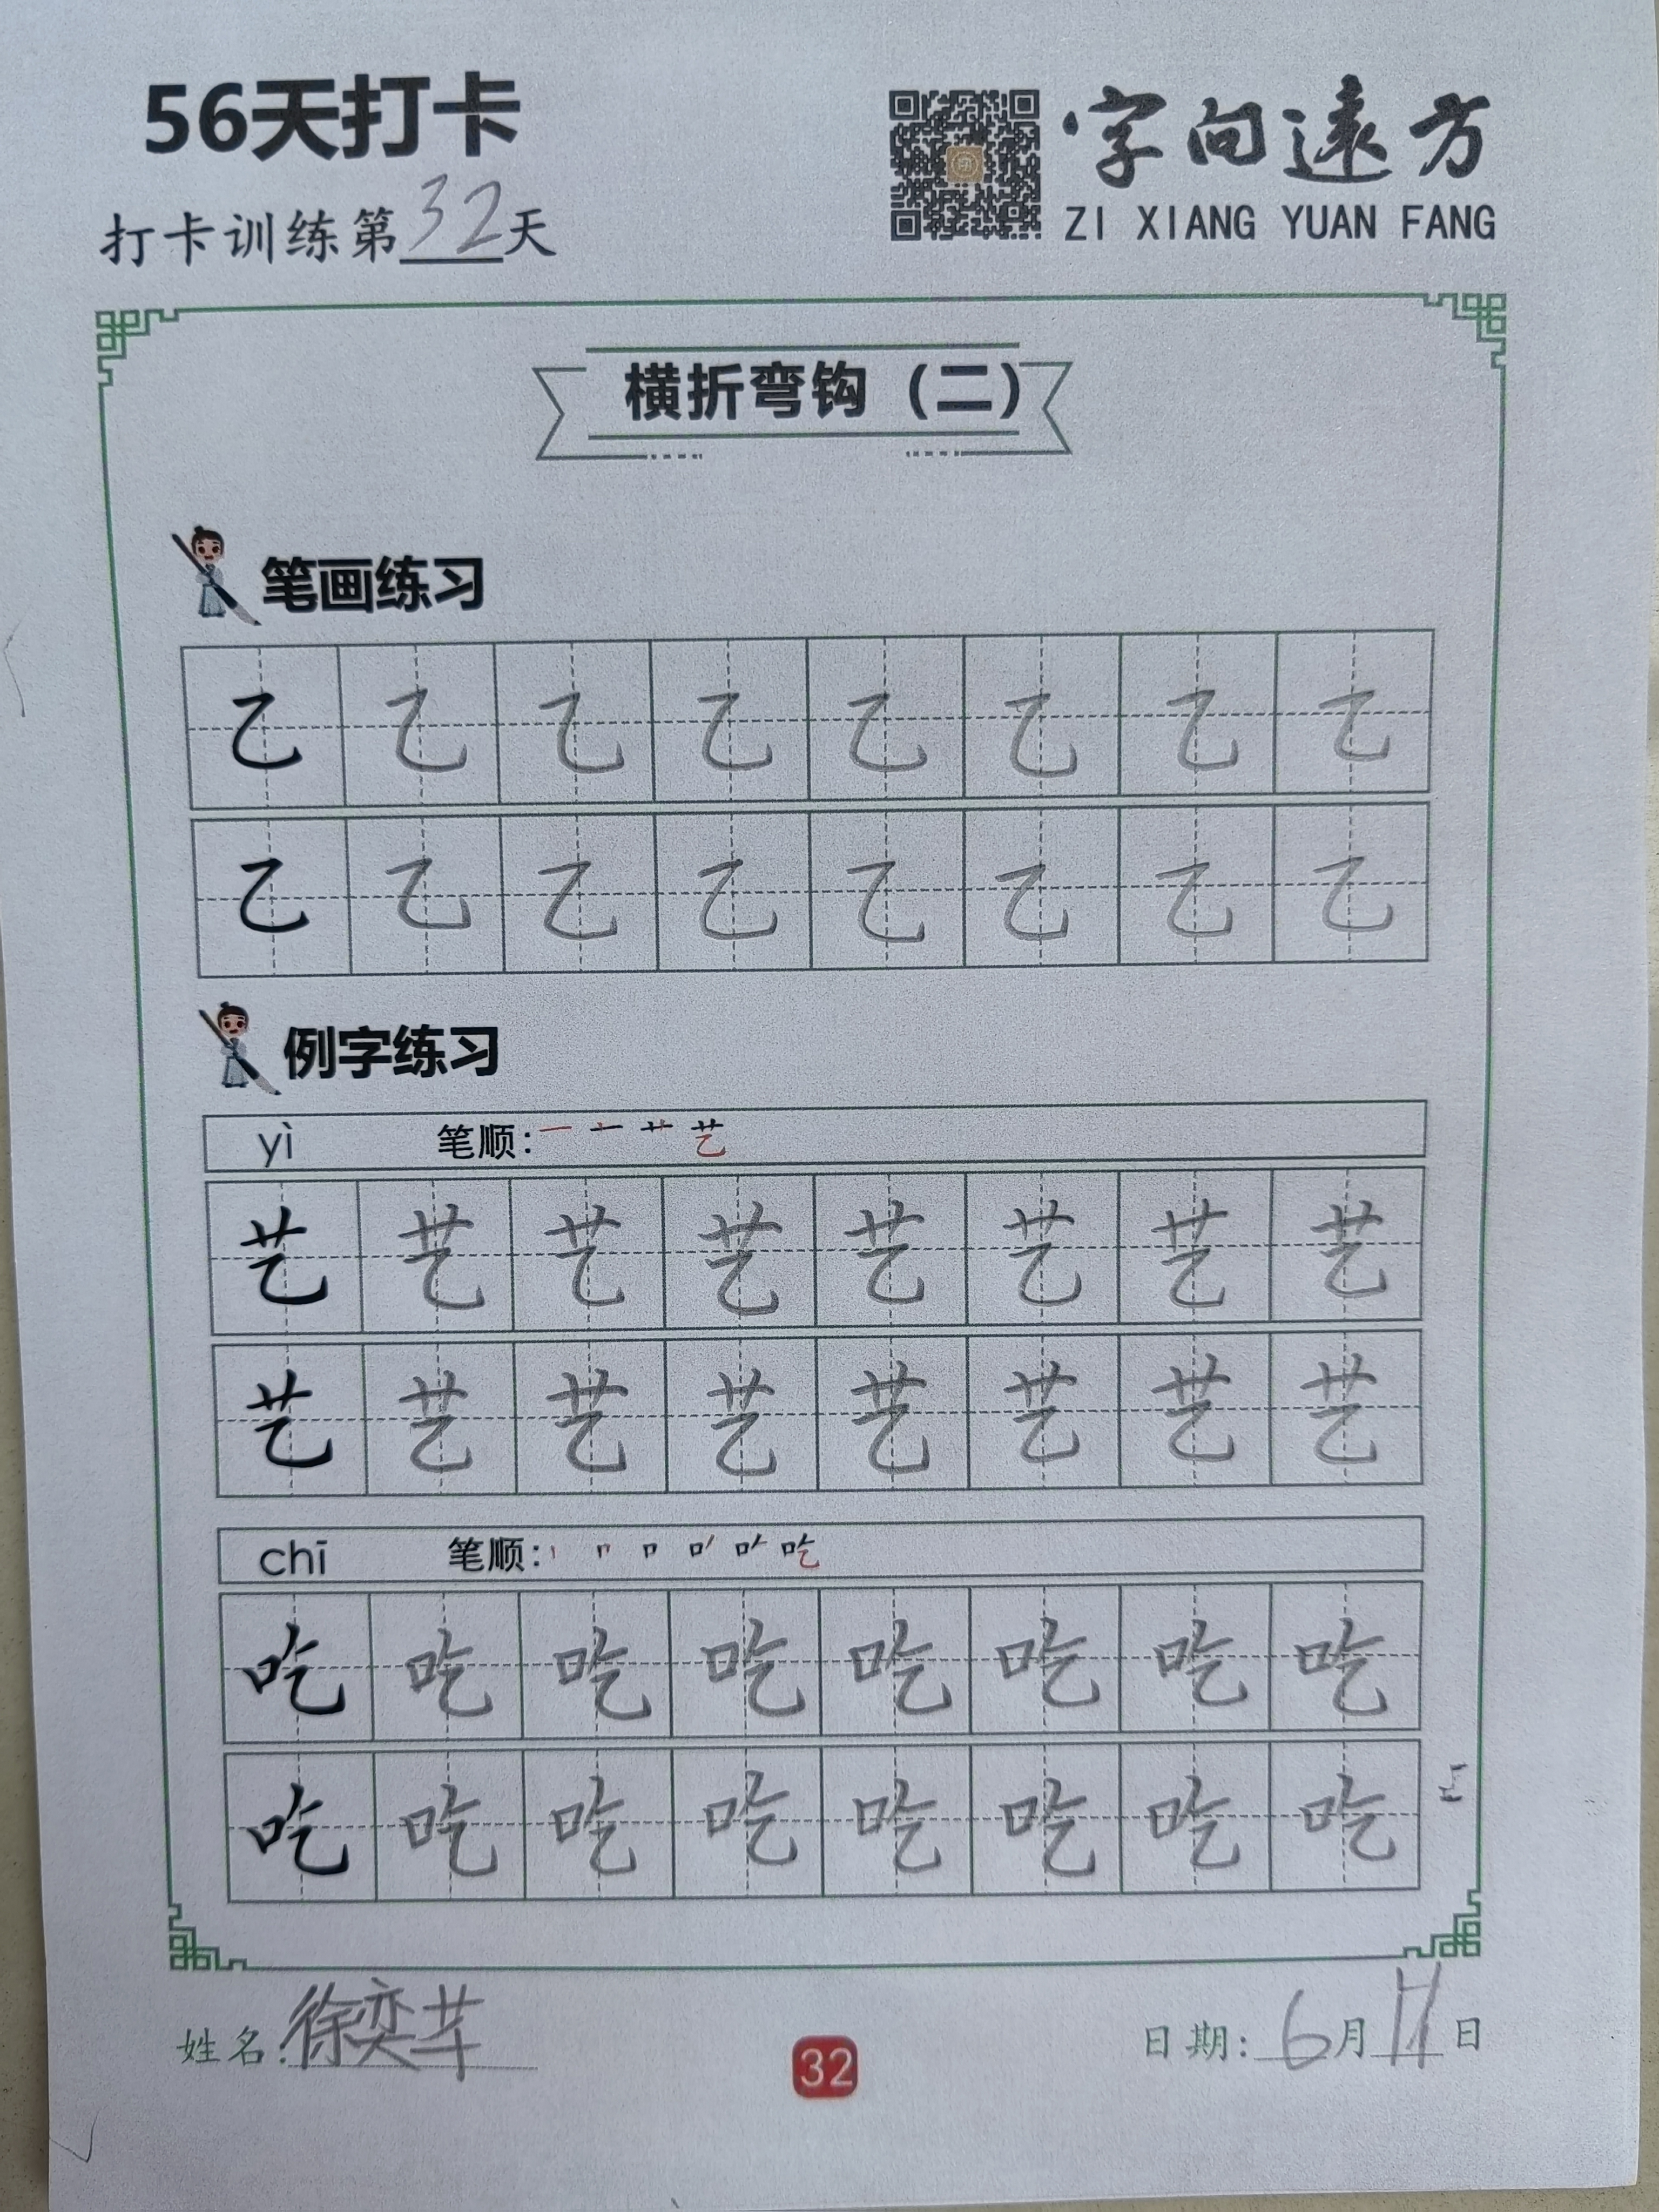 56天打卡
字向遠方
ZI XIANG YUAN FANG
打卡训练第32天
横折弯钩（二）
笔画练习
乙 乙 乙 乙 乙 乙 乙 乙
乙 乙 乙 乙 乙 乙 乙 乙
例字练习
yì 笔顺: 艺
艺 艺 艺 艺 艺 艺 艺 艺
艺 艺 艺 艺 艺 艺 艺 艺
chī 笔顺: 吃
吃 吃 吃 吃 吃 吃 吃 吃
吃 吃 吃 吃 吃 吃 吃 吃
姓名:徐奕
32
日期: 6月 日